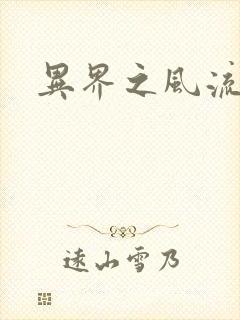 異界之風流
遠山雪乃